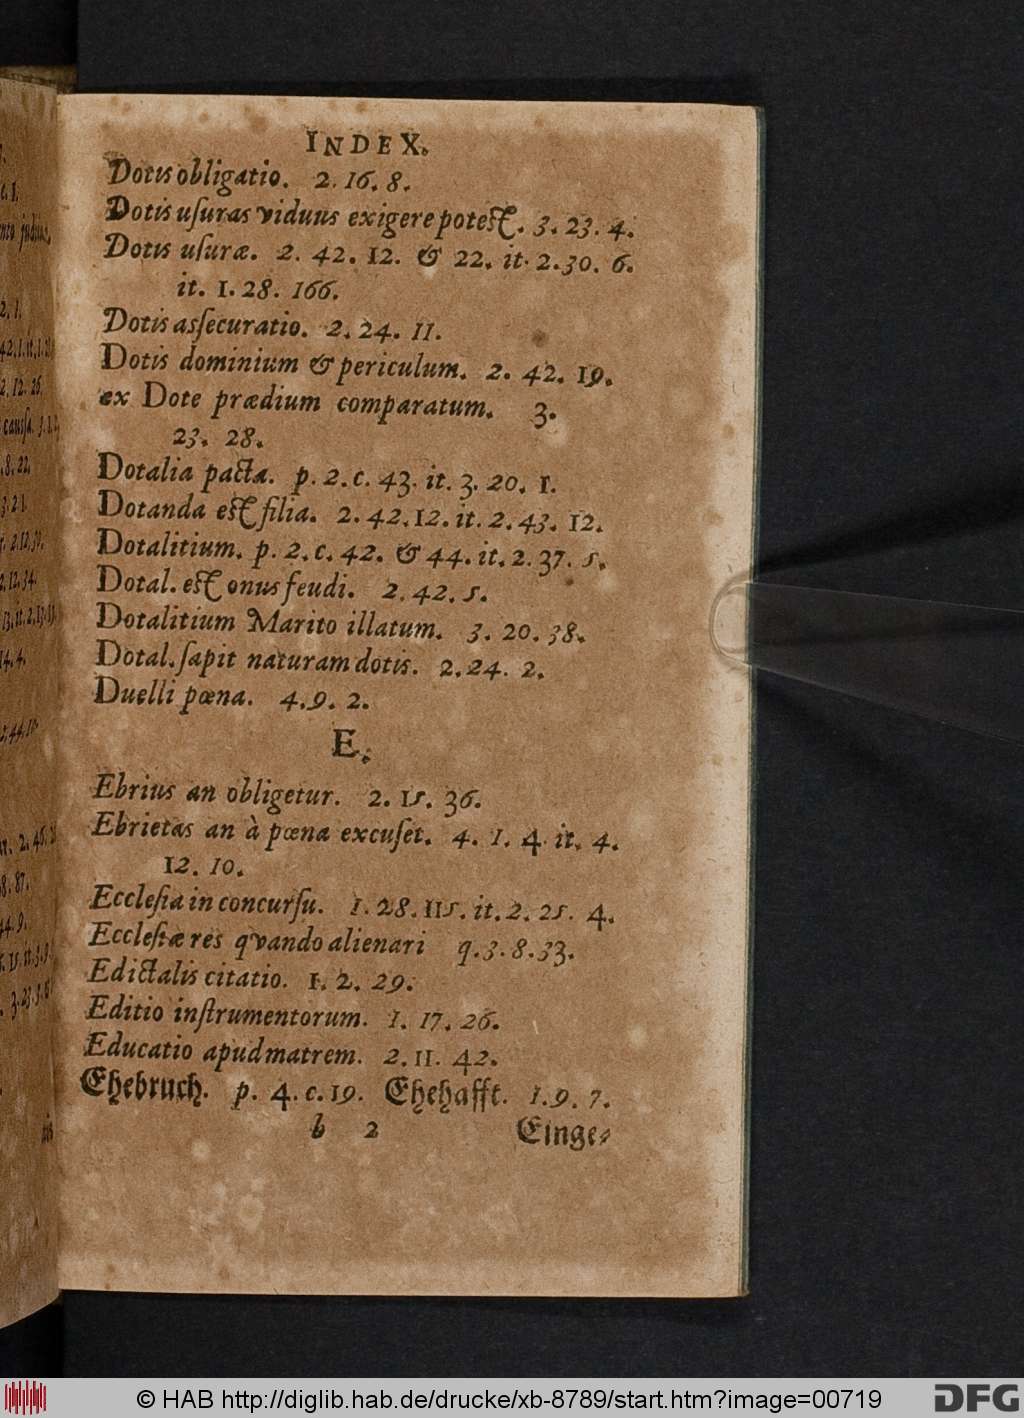 INDEX.
Dotis obligatio. 2. 16. 8.
Dotis uſuras viduus exigere poteſt. 3. 23. 4.
Dotis uſuræ. 2. 42. 12. & 22. it. 2. 30. 6.
it. 1. 28. 166.
Dotis aſſecuratio. 2. 24. 11.
Dotis dominium & periculum. 2. 42. 19.
ex Dote prædium comparatum. 3.
23. 28.
Dotalia pacta. p. 2. c. 43. it. 3. 20. 1.
Dotanda eſt filia. 2. 42. 12. it. 2. 43. 12.
Dotalitium. p. 2. c. 42. & 44. it. 2. 37. 5.
Dotal. eſt onus feudi. 2. 42. 5.
Dotalitium Marito illatum. 3. 20. 38.
Dotal. ſapit naturam dotis. 2. 24. 2.
Duelli pœna. 4. 9. 2.
E.
Ebrius an obligetur. 2. 15. 36.
Ebrietas an à pœna excuſet. 4. 1. 4. it. 4.
12. 10.
Eccleſia in concurſu. 1. 28. 115. it. 2. 25. 4.
Eccleſiæ res qvando alienari q. 3. 8. 33.
Edictalis citatio. 1. 2. 29.
Editio inſtrumentorum. 1. 17. 26.
Educatio apud matrem. 2. 11. 42.
Ehebruch. p. 4. c. 19. Ehehafft. 1. 9. 7.
b 2 Einge-
© HAB http://diglib.hab.de/drucke/xb-8789/start.htm?image=00719
DFG